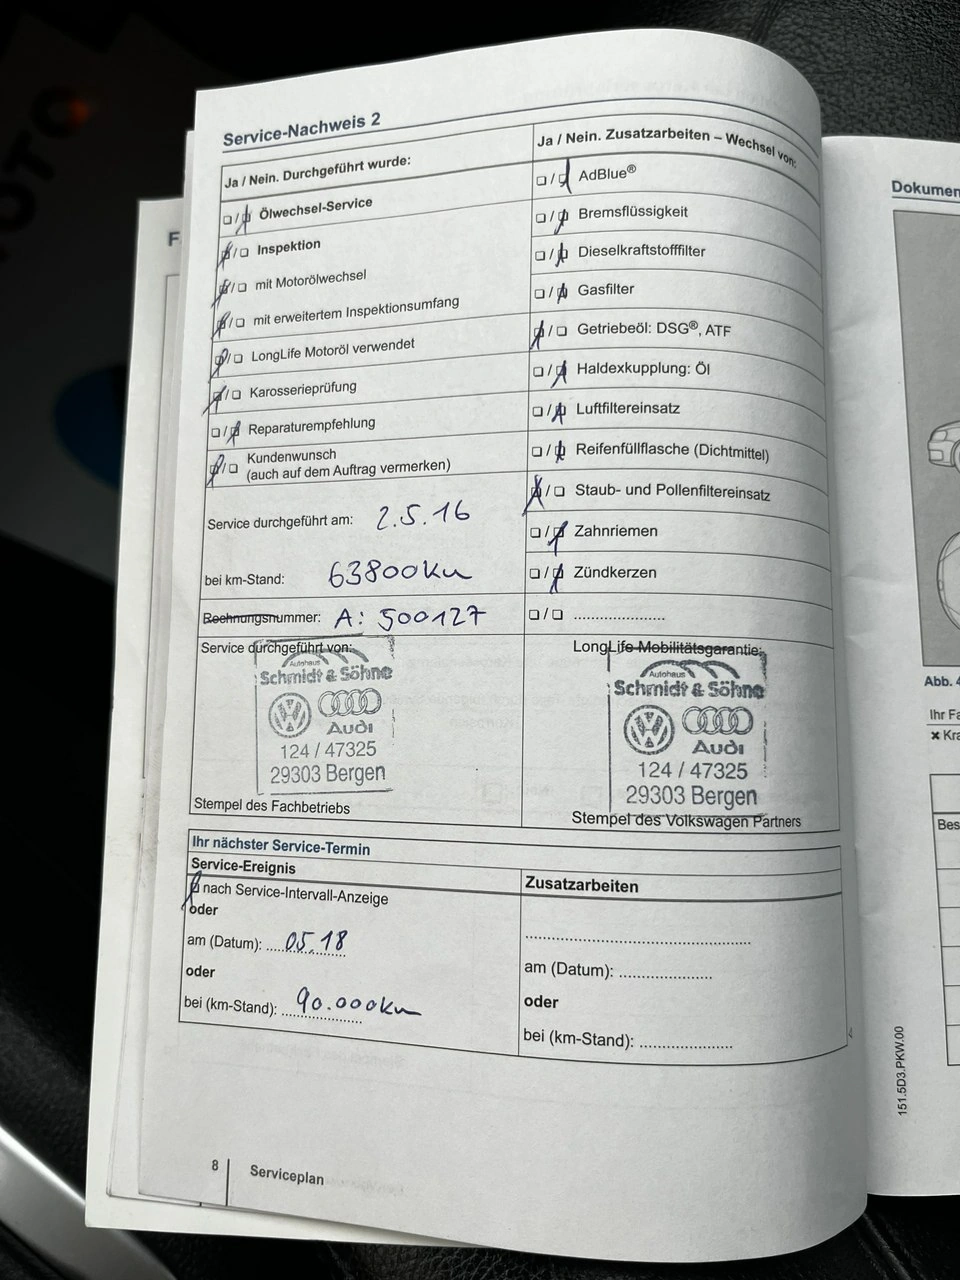 Service-Nachweis 2
Ja / Nein. Durchgeführt wurde:
☐/☐ Ölwechsel-Service
☐/☐ Inspektion
☐/☐ mit Motorölwechsel
☐/☐ mit erweitertem Inspektionsumfang
☐/☐ LongLife Motoröl verwendet
☐/☐ Karosserieprüfung
☐/☐ Reparaturempfehlung
☐/☐ Kundenwunsch
(auch auf dem Auftrag vermerken)
Service durchgeführt am: 2.5.16
bei km-Stand: 63800km
Rechnungsnummer: A: 500127
Service durchgeführt von:
Autohaus
Schmidt & Söhne
Audi
124 / 47325
29303 Bergen
Stempel des Fachbetriebs
Ja / Nein. Zusatzarbeiten – Wechsel von:
☐/☐ AdBlue®
☐/☐ Bremsflüssigkeit
☐/☐ Dieselkraftstofffilter
☐/☐ Gasfilter
☐/☐ Getriebeöl: DSG®, ATF
☐/☐ Haldexkupplung: Öl
☐/☐ Luftfiltereinsatz
☐/☐ Reifenfüllflasche (Dichtmittel)
☐/☐ Staub- und Pollenfiltereinsatz
☐/☐ Zahnriemen
☐/☐ Zündkerzen
☐/☐ ......................
LongLife Mobilitätsgarantie:
Autohaus
Schmidt & Söhne
Audi
124 / 47325
29303 Bergen
Stempel des Volkswagen Partners
Ihr nächster Service-Termin
Service-Ereignis
☐ nach Service-Intervall-Anzeige
oder
am (Datum): 05.18
oder
bei (km-Stand): 90.000km
Zusatzarbeiten
am (Datum): ......................
oder
bei (km-Stand): ......................
8
Serviceplan
Dokumen
Abb. 4
Ihr Fa
✖ Kra
Bes
151.5D3.PKW.00